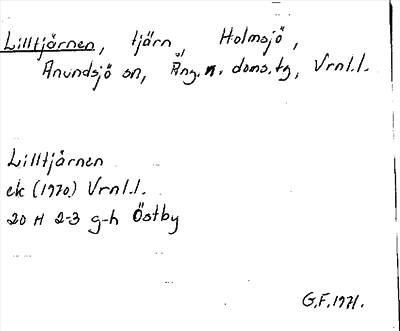 Lilltjärnen, tjärn Holmsjö,
Anundsjö sn, Ång. n. doms.tg, Vrnl.l.
Lilltjärnen
ek (1970) Vrnl.l.
20 H 2-3 g-h Östby
G.F. 1971.